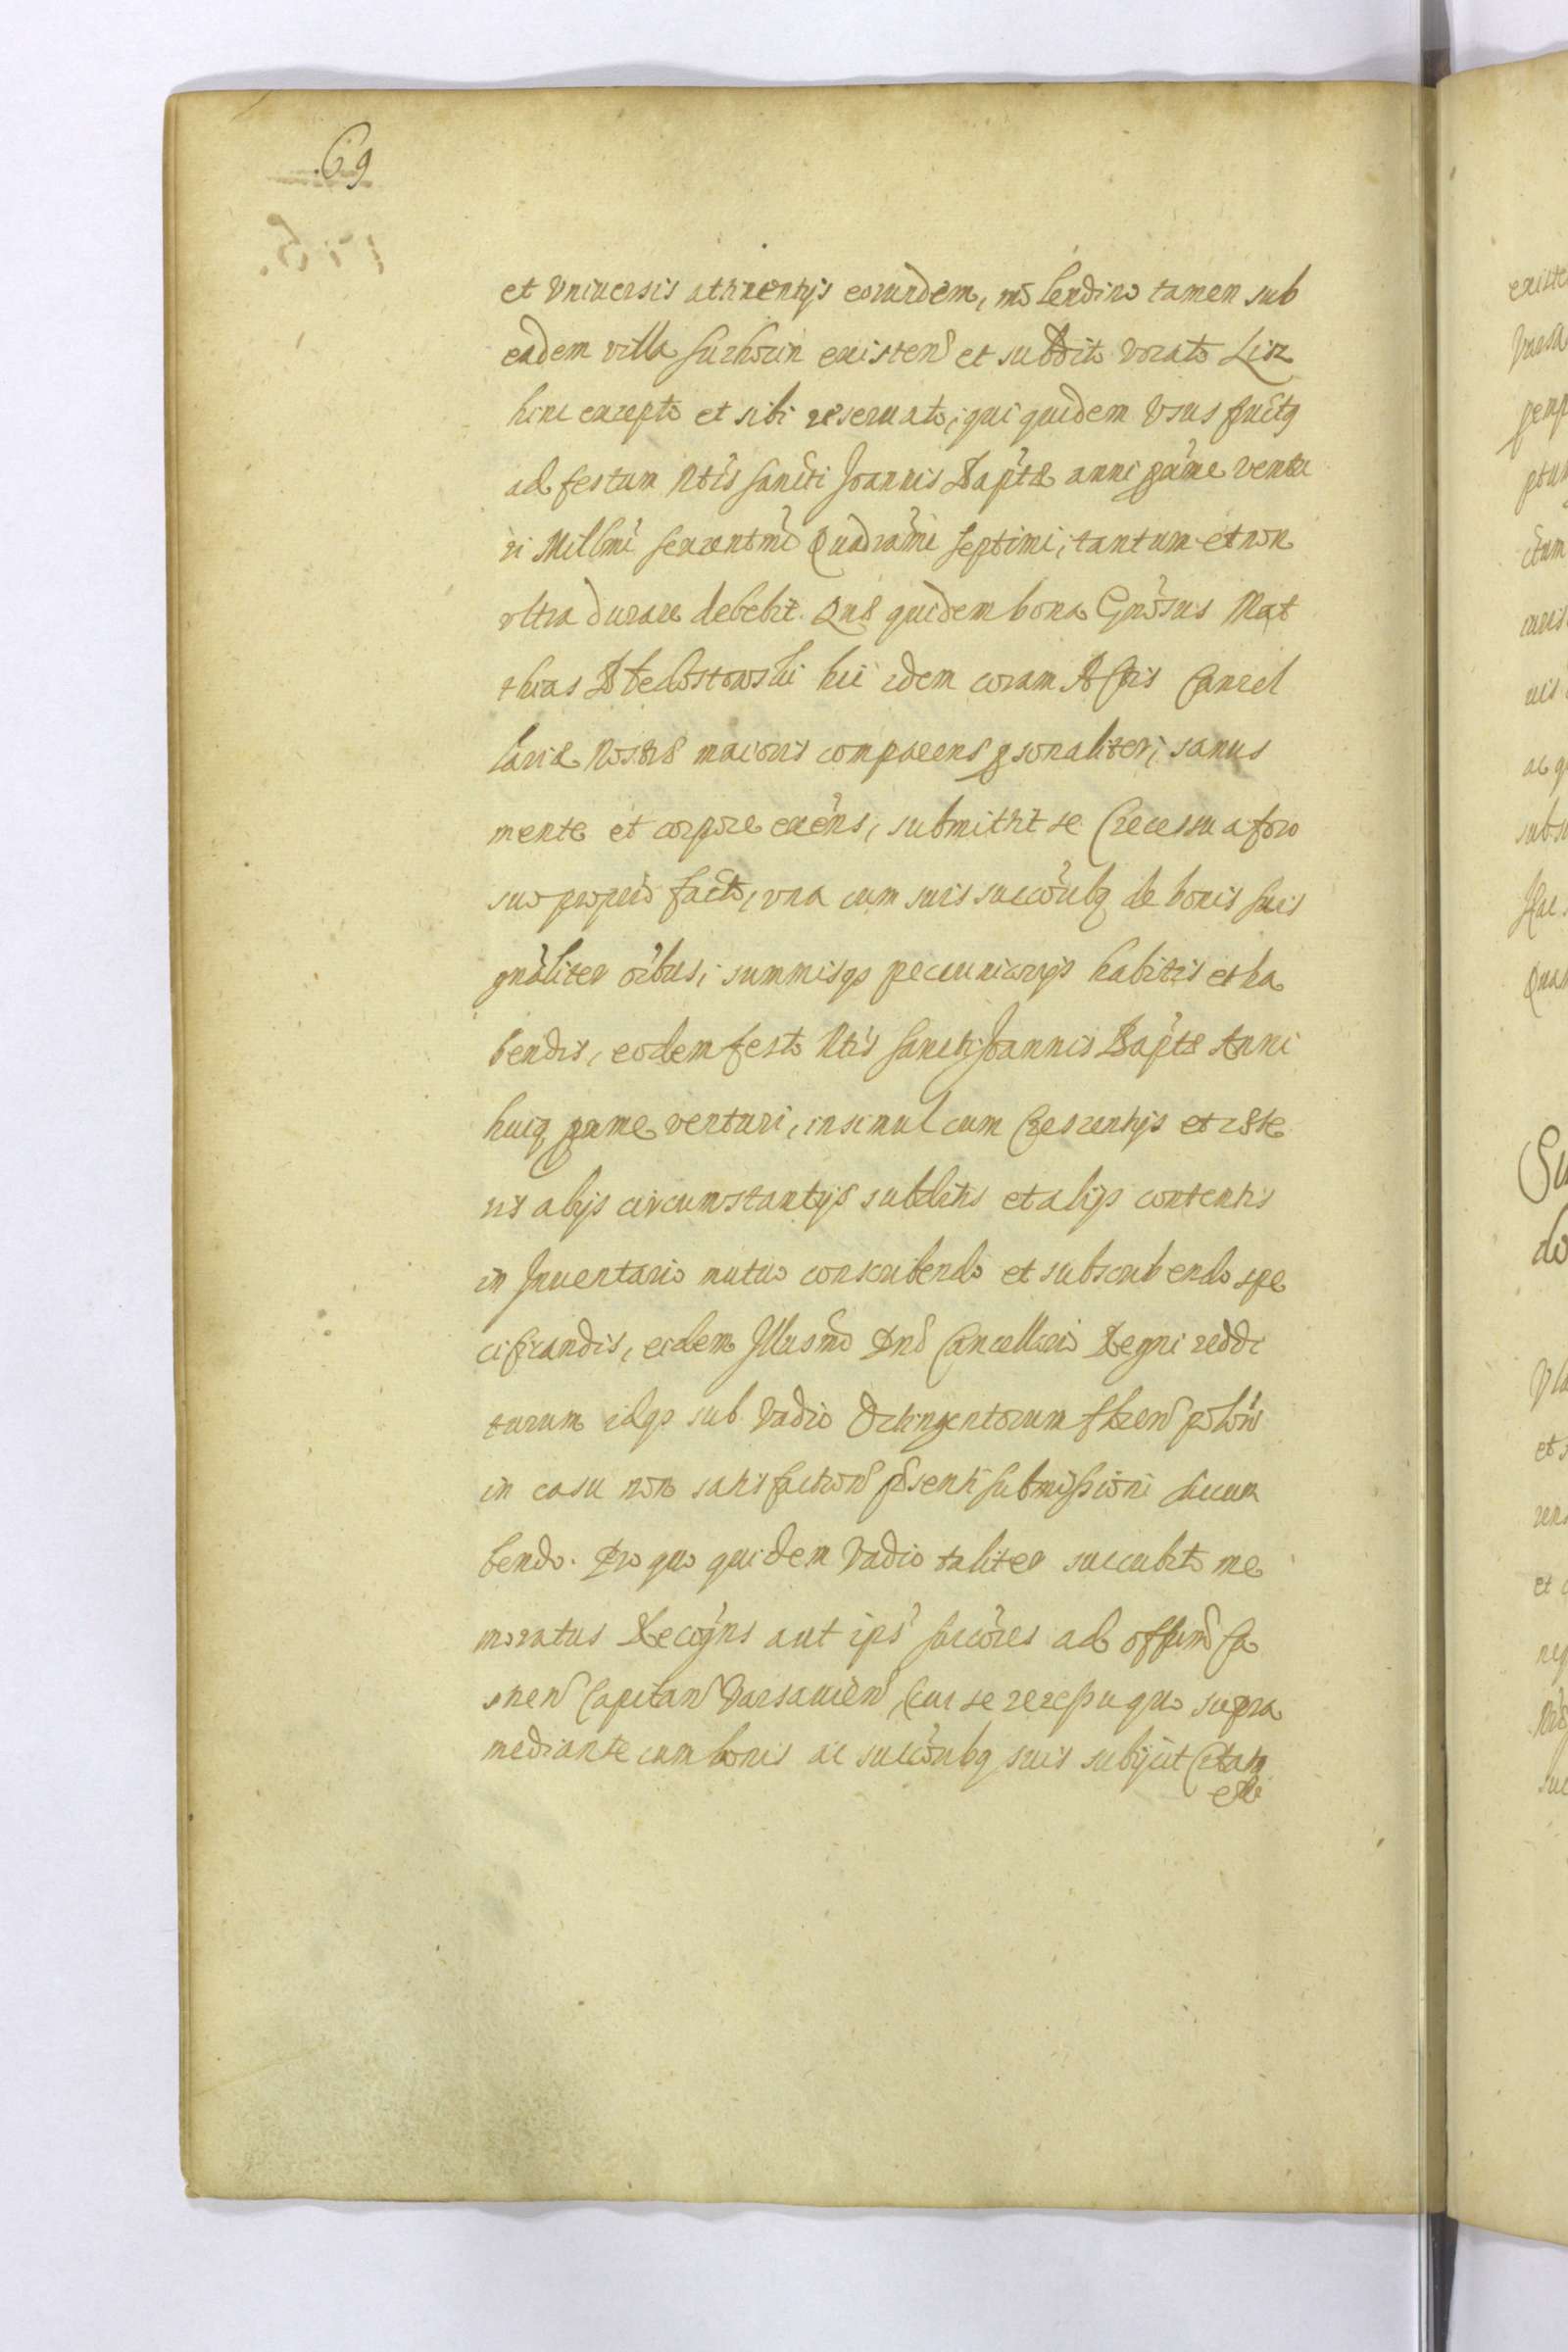 69
et Vniuersis attinentijs eorundem, molendino tamen sub
eadem villa Suchocin existen et subdito vocato Lisz
hinc excepto et sibi reseruato, qui quidem Vsus fructq
ad festum Ntis Sancti Joannis Baptæ anni pxime ventu
ri Millmi sexcentmi Quadrāmi septimi, tantum et non
vltra durare debebit. Quæ quidem bona Gnosus Mat
thias hic idem coram Actis Cancel
lariæ Nostræ maioris comparens psonaliter, sanus
mente et corpore exens, submittit se recessu a foro
suo proprio facto, vna cum suis succoribq de bonis suis
gnāliter oībus, summisqs pecuniarijs habitis et ha
bendis, eodem festo Ntis Sancti Joannis Baptæ Anni
huiq pxime venturi, insimul cum Crescentijs et cæte
ris alijs circumstantijs subditis et alijs contentis
in Inuentario mutuo conscribendo et subscribendo spe
cificandis, eidem Illusmo Dno Cancellario Regni reddi
turum idqs sub Vadio Octingentorum floren polon
in casu non satisfaction psenti submissioni succum
bendo. Pro quo quidem Vadio taliter succubito me
moratus Recogns aut ips succores ad offum Ca
stren Capitan Varsauien, cui se recessu quo supra
mediante cum bonis ac succoribq suis subijcit Citati